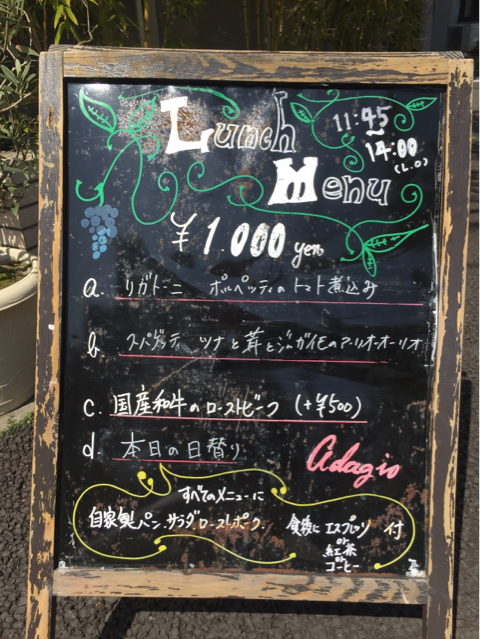 Lunch Menu
11:45
~
14:00
(L.O)
¥1.000 yen
a. リガトーニ ポルペッティのトマト煮込み
b. スパゲッティ ツナと茸とジャガイモのアーリオ・オーリオ
c. 国産和牛のローストビーフ (+¥500)
d. 本日の日替り
Adagio
すべてのメニューに
自家製パン、サラダ、ローストポーク、
食後に エスプレッソ or 紅茶 or コーヒー 付